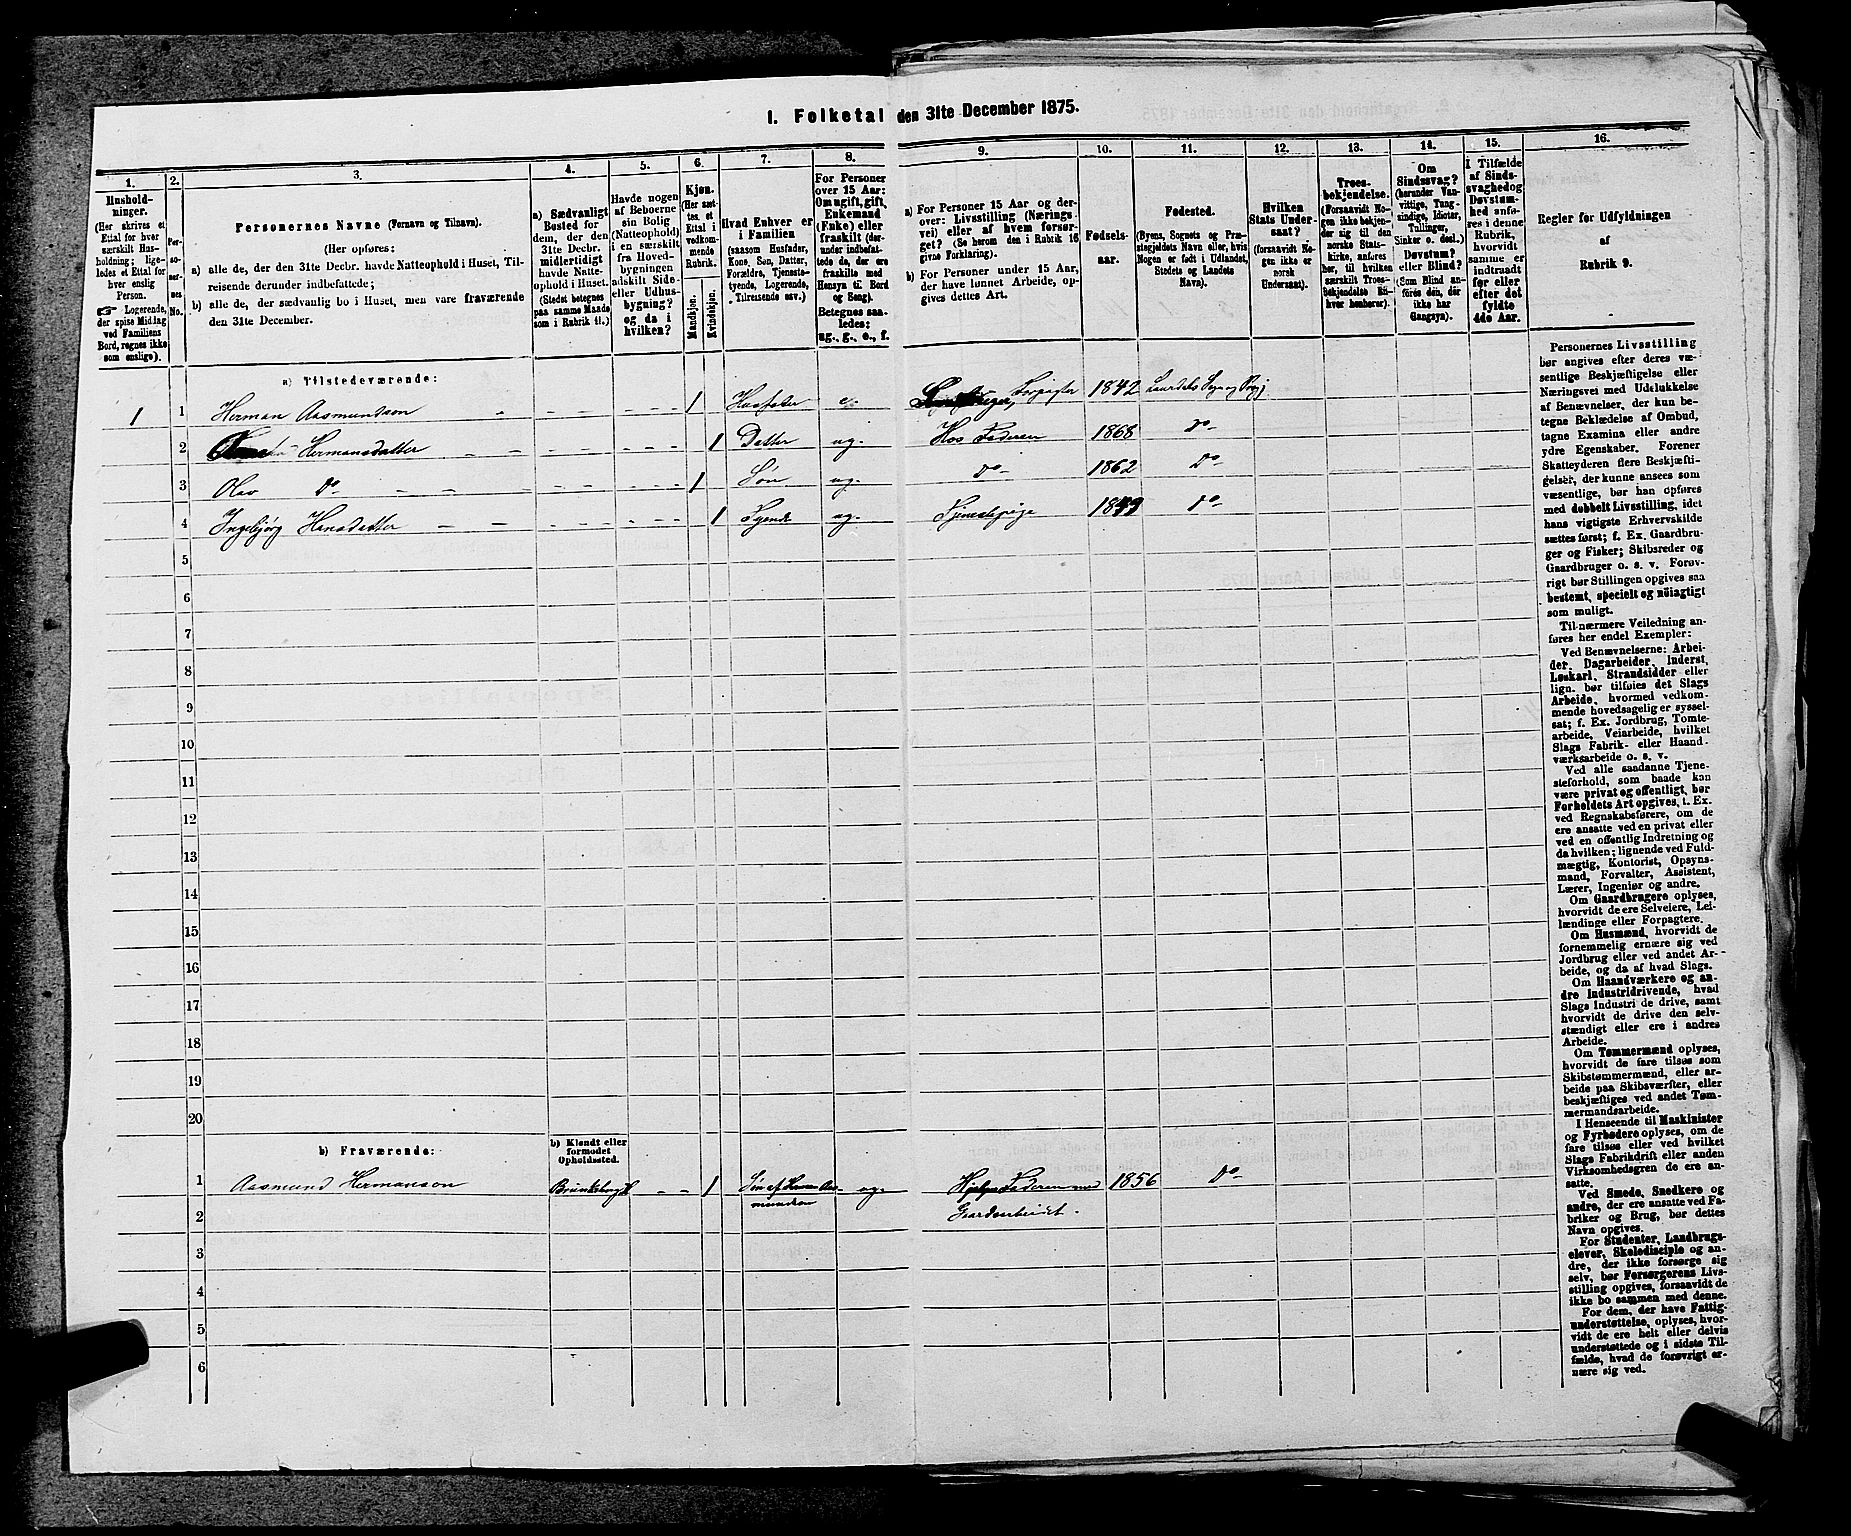 1. Folketal den 31te December 1875.
1.
Hushold-
ninger.
(Her skrives et
Ettal for hver
særskilt Hus-
holdning; lige-
ledes et Ettal for
hver enslig
Person.
☞ Logerende,
der spise Middag
ved Familiens
Bord, regnes ikke
som enslige).
2.
Per-
so-
ner-
nes
No.
3.
Personernes Navne (Fornavn og Tilnavn).
(Her opføres:
a) alle de, der den 31te Decbr. havde Natteophold i Huset, Til-
reisende derunder indbefattede;
b) alle de, der sædvanlig bo i Huset, men vare fraværende
den 31te December.
4.
a) Sædvanligt
Bosted for
dem, der den
31te Decbr.
midlertidigt
havde Natte-
ophold i Huset.
(Stedet betegnes
paa samme Maade
som i Rubrik 11.)
5.
Havde nogen
af Beboerne
sin Bolig
(Natteophold)
i en særskilt
fra Hoved-
bygningen
adskilt Side-
eller Udhus-
bygning?
og da i
hvilken?
6.
Kjøn.
(Her sæt-
tes et
Ettal i
vedkom-
mende
Rubrik.
Mandkjøn.
Kvindekjøn.
7.
Hvad Enhver er
i Familien
(saasom Husfader,
Kone, Søn, Datter,
Forældre, Tjeneste-
tyende, Logerende,
Tilreisende osv.)
8.
For Personer
over 15 Aar:
Om ugift, gift,
Enkemand
(Enke) eller
fraskilt (der-
under indbefat-
tede de, der ere
fraskilte med
Hensyn til Bord
og Seng).
Betegnes saa-
ledes:
ug., g., e., f.
9.
a) For Personer 15 Aar og der-
over: Livsstilling (Nærings-
vei) eller af hvem forsør-
get? (Se herom den i Rubrik 16
givne Forklaring).
b) For Personer under 15 Aar,
der have lønnet Arbeide, op-
gives dettes Art.
10.
Fødsels-
aar.
11.
Fødested.
(Byens, Sognets og Præ-
stegjeldets Navn eller, hvis
Nogen er født i Udlandet,
Stedets og Landets
Navn).
12.
Hvilken
Stats Under-
saat?
(forsaavidt No-
gen ikke er
norsk
Undersaat).
13.
Troes-
bekjendelse.
(Forsaavidt No-
gen ikke bekjen-
der sig til den
norske Stats-
kirke, anføres
her, til hvilken
særskilt Troes-
Bekjendelse En-
hver henhører).
14.
Om
Sindssvag?
(herunder Van-
vittige, Tung-
sindige, Idioter,
Tullinger,
Sinker o. desl.)
Døvstum?
eller Blind?
(Som Blind an-
føres den, der
ikke har
Gangsyn).
15.
I Tilfælde
af Sinds-
svaghed og
Døvstum-
hed anfø-
res i denne
Rubrik,
hvorvidt
samme er
indtraadt
før eller
efter det
fyldte
4de Aar.
16.
Regler for Udfyldningen
af
Rubrik 9.
a) Tilstedeværende:
1 1 Herman Aasmundson - - - - - - 1 Husfader e. Forpagter 1842 Laurdals Sogn og Prgj
2 Hermansdatter - - - - - - 1 Datter ug. Hos Faderen 1868 Do
3 Olav Do - - - - - - 1 Søn ug. Do 1862 Do
4 Ingebjørg Hansdatter - - - - - - 1 Tyende ug. Tjenestepige 1849 Do
5
6
7
8
9
10
11
12
13
14
15
16
17
18
19
20
b) Fraværende:
b) Kjendt eller
formodet
Opholdssted.
1 Aasmund Hermanson Brunkebergk - - 1 Søn af Herman Aas-
mundson ug. Hjelper Faderen med 1856 Do
Gaardsarbeidet.
2
3
4
5
6
Personernes Livsstilling
bør angives efter deres væ-
sentlige Beskjæftigelse eller
Næringsvei med Udelukkelse
af Benævnelser, der kun be-
tegne Beklædelse af Ombud,
tagne Examina eller andre
ydre Egenskaber. Forener
Skatteyderen flere Beskjæfti-
gelser, der kunne ansees som
væsentlige, bør han opføres
med dobbelt Livsstilling, idet
hans vigtigste Erhvervskilde
sættes først; f. Ex. Gaardbru-
ger og Fisker; Skibsreder og
Gaardbruger o. s. v. Forøv-
rigt bør Stillingen opgives saa
bestemt, specielt og nøiagtigt
som muligt.
Til nærmere Veiledning an-
føres her endel Exempler:
Ved Benævnelserne: Arbei-
der, Dagarbeider, Inderst,
Løskarl, Strandsidder eller
lign. bør tilføies det Slags
Arbeide, hvormed vedkom-
mende hovedsagelig er syssel-
sat; f. Ex. Jordbrug, Tomte-
arbeide, Veiarbeide, hvilket
Slags Fabrik- eller Haand-
værksarbeide o. s. v.
Ved alle saadanne Tjene-
steforhold, som baade kan
være privat og offentligt, bør
Forholdets Art opgives, f. Ex.
ved Regnskabsførere, om de
ere ansatte ved en privat eller
ved en offentlig Indretning og
da hvilken; lignende ved Fuld-
mægtig, Kontorist, Opsyns-
mand, Forvalter, Assistent,
Lærer, Ingeniør og andre.
Om Gaardbrugere oplyses,
hvorvidt de ere Selveiere, Lei-
lændinge eller Forpagtere.
Om Husmænd, hvorvidt de
fornemmelig ernære sig ved
Jordbrug eller ved andet Ar-
beide, og da af hvad Slags.
Om Haandværkere og an-
dre Industridrivende, hvad
Slags Industri de drive, samt
hvorvidt de drive den selv-
stændigt eller ere i andres
Arbeide.
Om Tømmermænd oplyses,
hvorvidt de fare tilsøs som
Skibstømmermænd, eller ar-
beide paa Skibsværfter, eller
beskjæftiges ved andet Tøm-
mermandsarbeide.
I Henseende til Maskinister
og Fyrbødere oplyses, om de
fare tilsøs eller ved hvilket
Slags Fabrikdrift eller anden
Virksomhedsgren de ere an-
satte.
Ved Smede, Snedkere og
andre, der ere ansatte ved Fa-
briker og Brug, bør dettes
Navn opgives.
For Studenter, Landbrugs-
elever, Skoledisciple og an-
dre, der ikke forsørge sig
selv, bør Forsørgerens Livs-
stilling opgives, forsaavidt de
ikke bo sammen med denne.
For dem, der have Fattig-
understøttelse, oplyses, hvor-
vidt de ere helt eller delvis
understøttede og i sidste Til-
fælde, hvad de forøvrigt er-
nære sig ved.